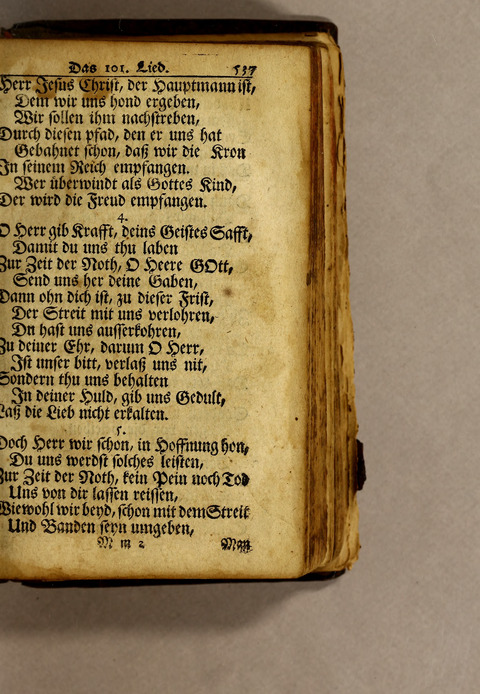 Das 101. Lied. 537
Herr Jesus Christ, der Hauptmann ist,
Dem wir uns hond ergeben,
Wir sollen ihm nachstreben,
Durch diesen pfad, den er uns hat
Gebahnet schon, daß wir die Kron
In seinem Reich empfangen.
Wer überwindt als Gottes Kind,
Der wird die Freud empfangen.
4.
O Herr gib Krafft, deins Geistes Safft,
Damit du uns thu laben
Zur Zeit der Noth, O Heere GOtt,
Send uns her deine Gaben,
Dann ohn dich ist, zu dieser Frist,
Der Streit mit uns verlohren,
Dn hast uns ausserkohren,
Zu deiner Ehr, darum O Herr,
Ist unser bitt, verlaß uns nit,
Sondern thu uns behalten
In deiner Huld, gib uns Gedult,
Laß die Lieb nicht erkalten.
5.
Doch Herr wir schon, in Hoffnung hon,
Du uns werdst solches leisten,
Zur Zeit der Noth, kein Pein noch Tod
Uns von dir lassen reissen,
Wiewohl wir beyd, schon mit dem Streit
Und Banden seyn umgeben,
M m 2 Man